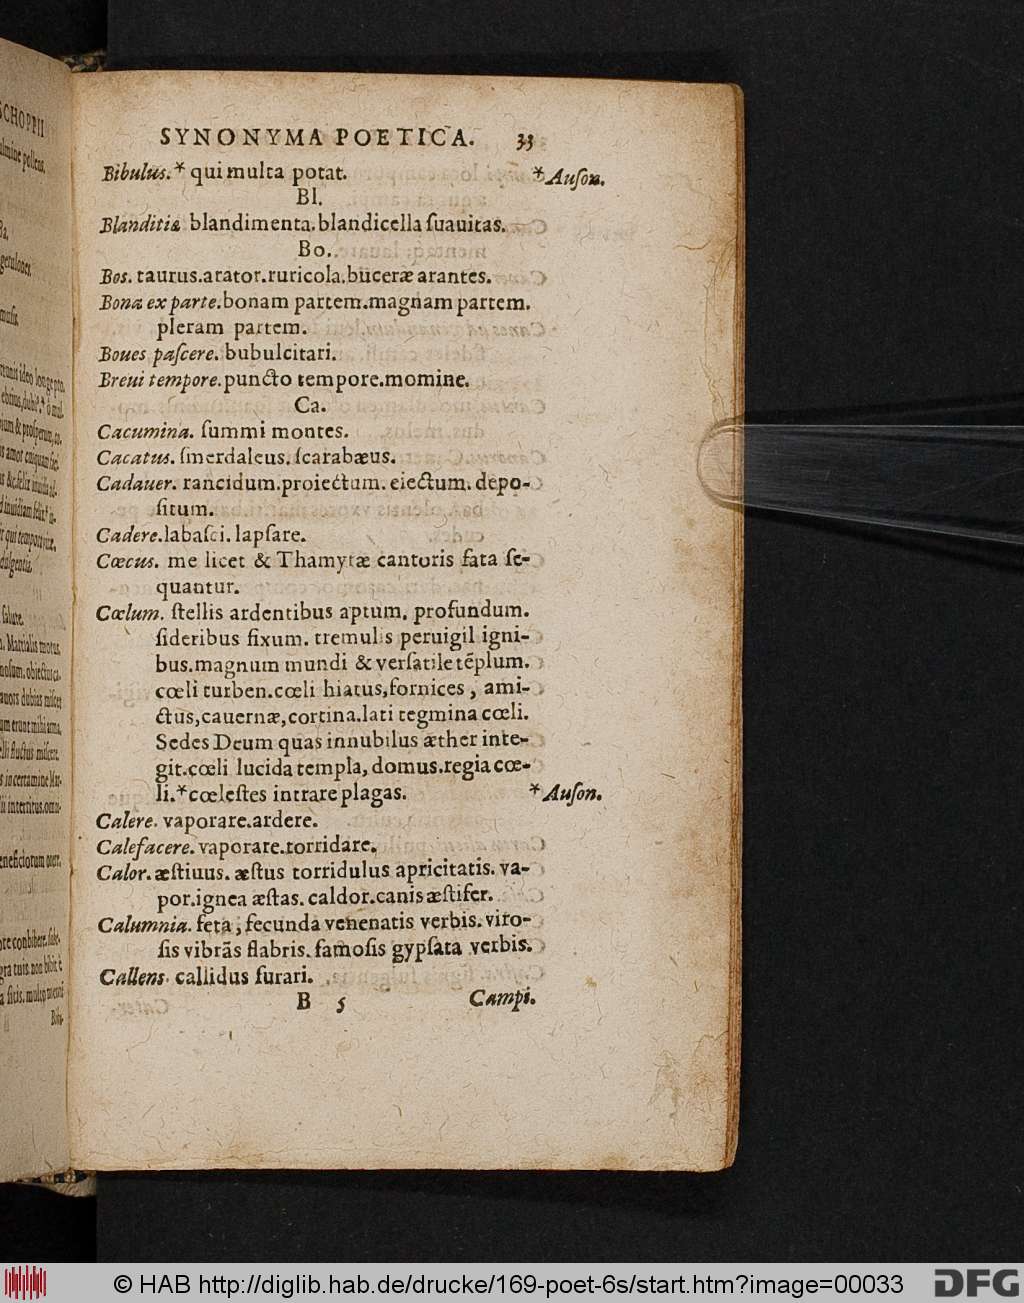 SYNONYMA POETICA. 33
Bibulus.* qui multa potat. * Auſon.
Bl.
Blanditiæ blandimenta. blandicella ſuauitas.
Bo.
Bos. taurus. arator. ruricola. buceræ arantes.
Bona ex parte. bonam partem. magnam partem.
pleram partem.
Boues paſcere. bubulcitari.
Breui tempore. puncto tempore. momine.
Ca.
Cacumina. ſummi montes.
Cacatus. ſmerdaleus. ſcarabæus.
Cadauer. rancidum. proiectum. eiectum. depo-
ſitum.
Cadere. labaſci. lapſare.
Cœcus. me licet & Thamyræ cantoris fata ſe-
quantur.
Cœlum. ſtellis ardentibus aptum. profundum.
ſideribus fixum. tremulis peruigil igni-
bus. magnum mundi & verſatile tẽplum.
cœli turben. cœli hiatus, fornices, ami-
ctus, cauernæ, cortina. lati tegmina cœli.
Sedes Deum quas innubilus æther inte-
git. cœli lucida templa, domus. regia cœ-
li. * cœleſtes intrare plagas. * Auſon.
Calere. vaporare. ardere.
Calefacere. vaporare. torridare.
Calor. æſtiuus. æſtus torridulus apricitatis. va-
por. ignea æſtas. caldor. canis æſtifer.
Calumnia. feta, fecunda venenatis verbis. viro-
ſis vibrãs flabris. famoſis gypſata verbis.
Callens. callidus furari.
B 5 Campi.
SCHOPPII
© HAB http://diglib.hab.de/drucke/169-poet-6s/start.htm?image=00033
DFG